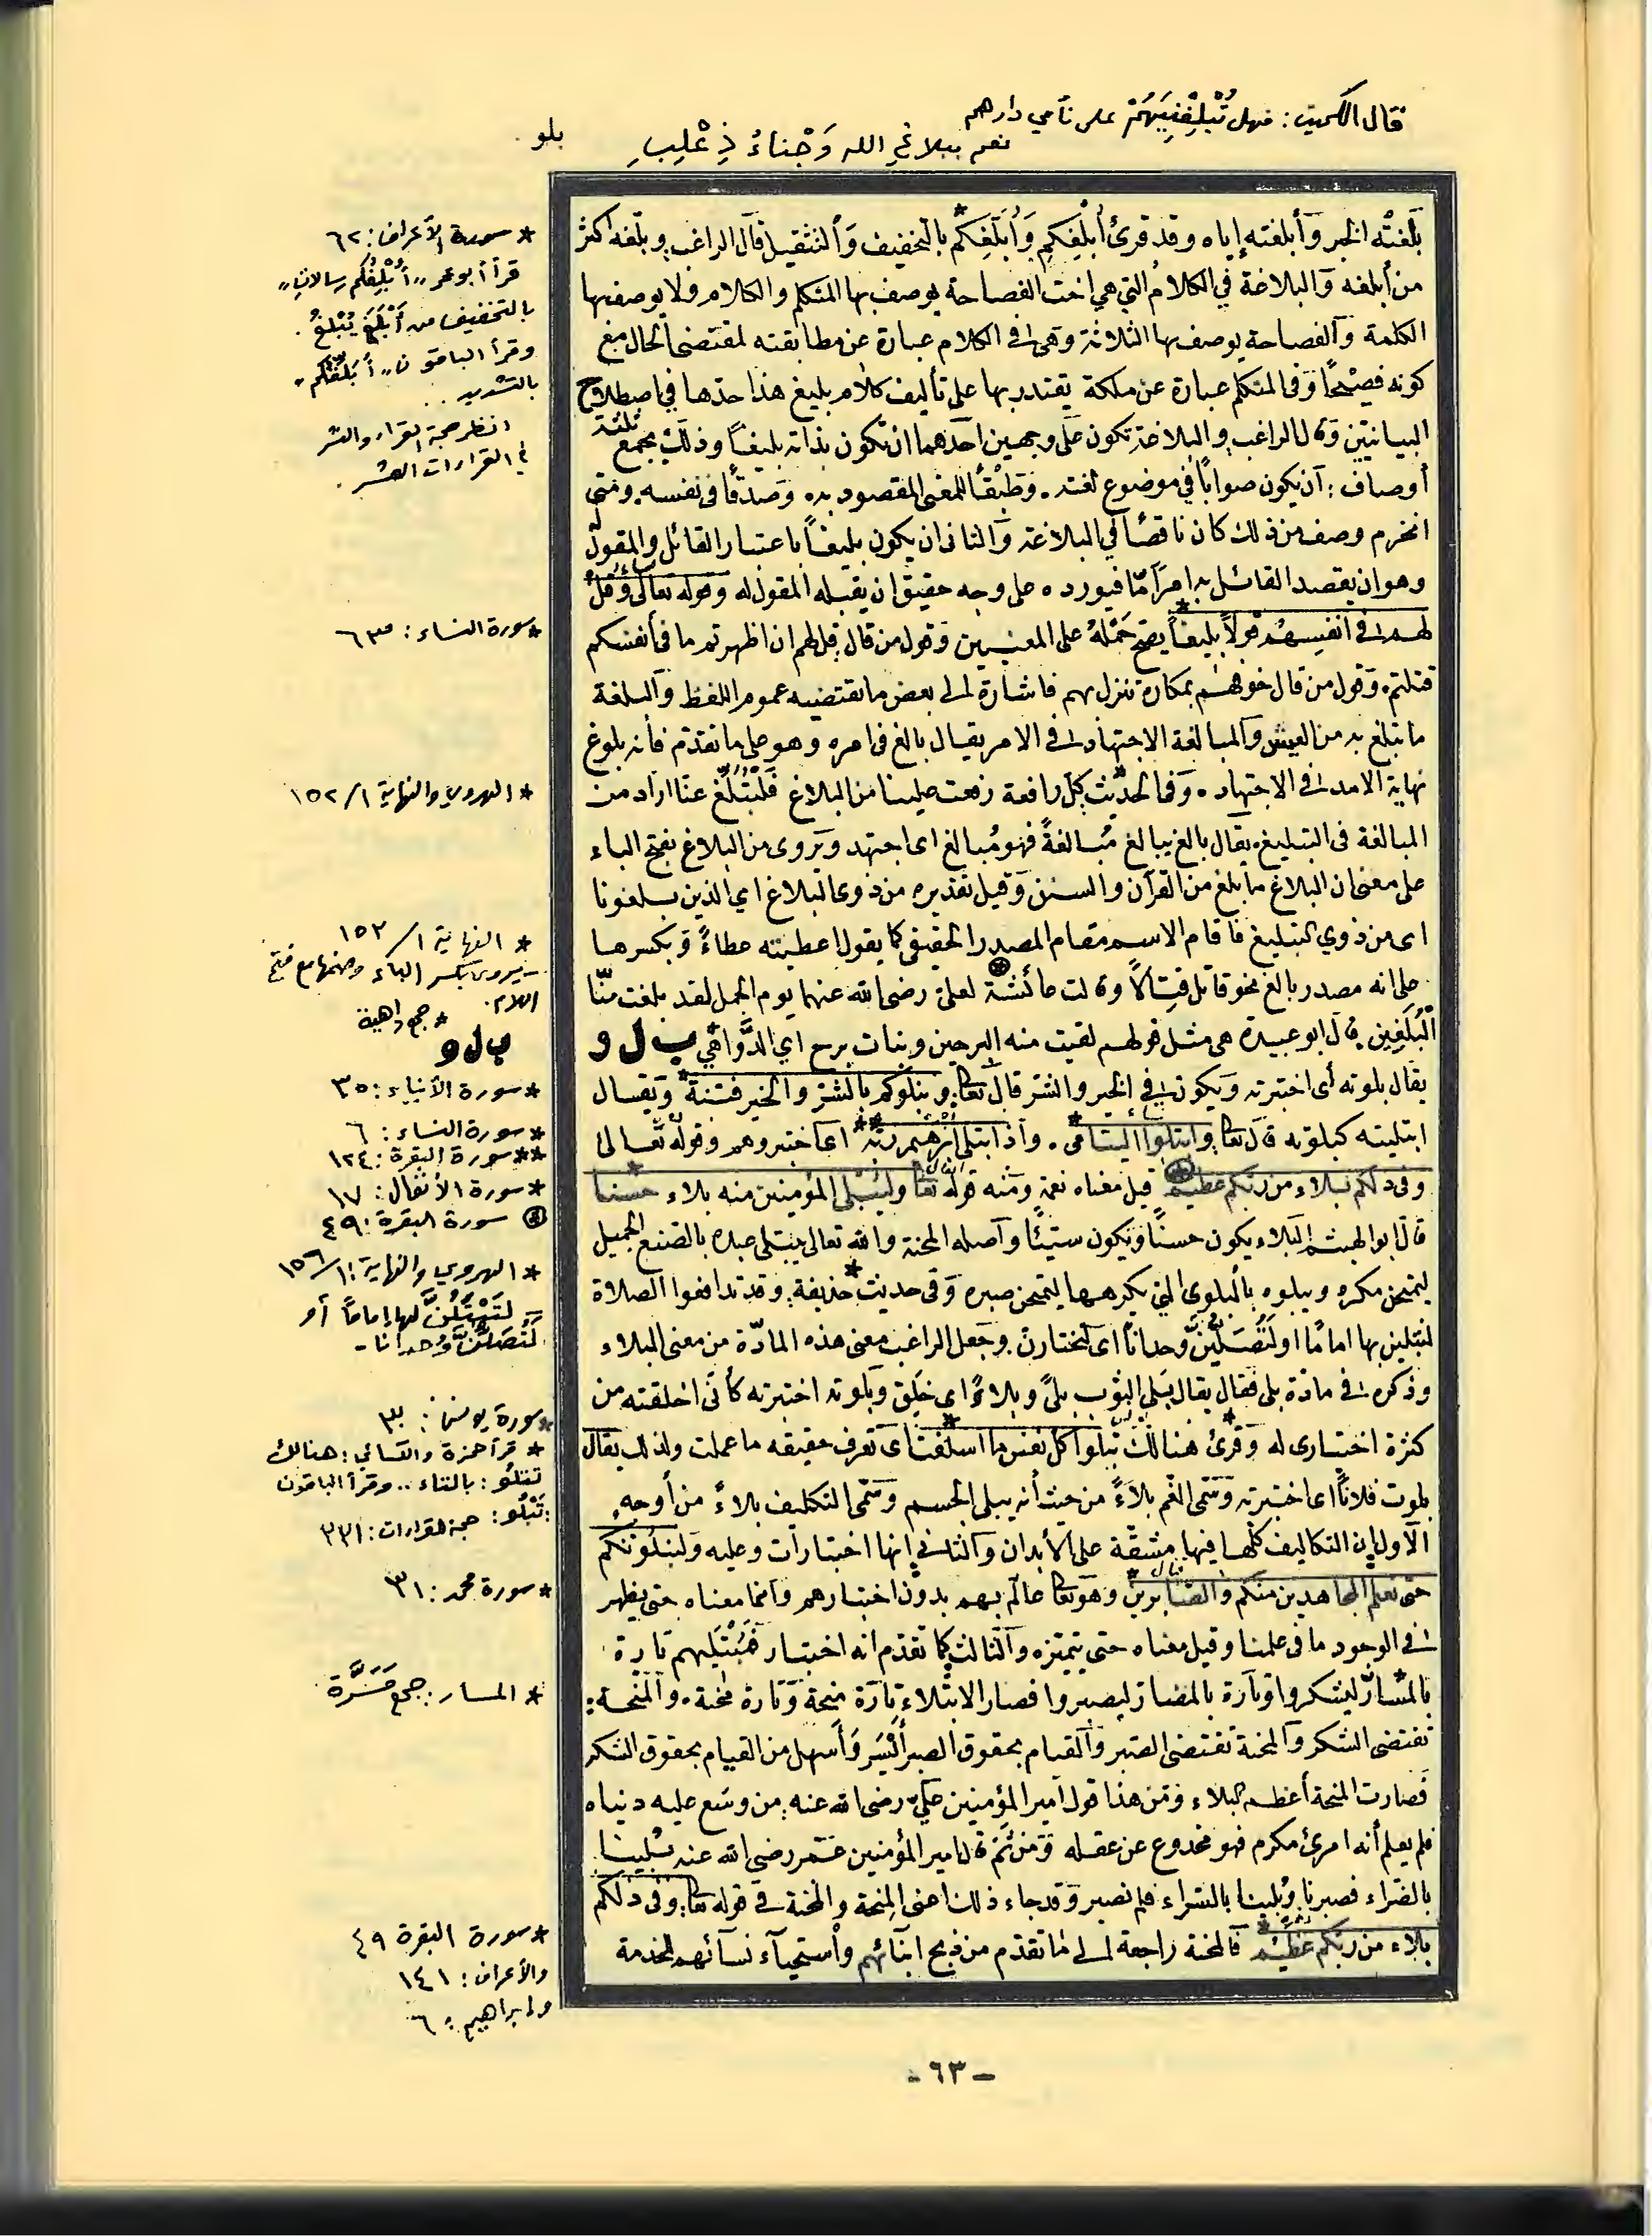 قال الكميت: فهل تُبْلِغَنِّيهُمْ على نأي دارهم
نعم ببلاغ الله وَجْناءُ ذِعْلِبِ
بلو
بلّغتُه الخبر وأبلغته إياه وقد قرئ أُبْلِغكم وَأُبَلِّغكم* بالتخفيف والتثقيل قال الراغب وبلّغه أكثر
من أبلغه والبلاغة في الكلام التي هي اخت الفصاحة يوصف بها المتكلم والكلام ولا يوصف بها
الكلمة والفصاحة يوصف بها الثلاثة وهي في الكلام عبارة عن مطابقته لمقتضى الحال مع
كونه فصيحًا وفي المتكلم عبارة عن ملكة يقتدر بها على تأليف كلام بليغ هذا حدّها في اصطلاح
البيانيين وقال الراغب والبلاغة تكون على وجهين احدهما ان تكون بذاته بليغاً وذلك بجمع ثلثة
أوصاف: أن يكون صوابًا في موضوع لغته. وطبْقاً للمعنى المقصود به. وصدقًا في نفسه. ومتى
انخرم وصف من ذلك كان ناقصًا في البلاغة والثاني ان يكون بليغاً باعتبار القائل والمقول
وهو ان يقصد القائل به امرًا مّا فيورده على وجه حقيق ان يقبله المقول له وقوله تعالى وقل
لهم في أنفسهم قولاً بليغاً* يصح حَمْلُهُ على المعنيين وقول من قال قل لهم ان اظهرتم ما في أنفسكم
قتلتم. وقول من قال خوّفهم بمكاره تنزل بهم فاشارة الى بعض ما يقتضيه عموم اللفظ والبلغة
ما يتبلغ به من العيش والمبالغة الاجتهاد في الامر يقال بالغ في امره وهو على ما تقدّم فانه بلوغ
نهاية الامد في الاجتهاد. وفي الحديث كل رافعة رفعت علينا من البلاغ فَلْتُبَلِّغ عنّا اراد من
المبالغة في التبليغ. يقال بالغ يبالغ مُبالغةً فهو مُبالغ اى اجتهد ويروى من البلاغ بفتح الباء
على معنى ان البلاغ ما بلغ من القرآن والسنن وقيل تقديره من ذوى البلاغ اي الذين يبلغونا
اى من ذوي التبليغ فاقام الاسم مقام المصدر الحقيقى كما يقول اعطيته عطاءً وبكسرها
على انه مصدر بالغ نحو قاتل قتالاً وقالت عائشة لعلىّ رضى الله عنهما يوم الجمل لقد بلغت منّا
الْبُلَغِين قال ابو عبيدة هى مثل قولهم لقيت منه البرحين وبنات برح اي الدّواهي* ب ل و
يقال بلوته أى اختبرته ويكون في الخير والشر قال تعالى ونبلوكم بالشرّ والخير فتنة* ويقال
ابتليته كبلوته قال تعالى وابتلوا اليتامى*. وإذ ابتلى ابرٰهيم ربّه** اى اختبروهم وقوله تعالى
وفى ذلكم بلاء من ربكم عظيم قيل معناه نعمة ومنه قوله تعالى وليُبْلى المؤمنين منه بلاء حسنا*
قال ابو الهيثم البلاء يكون حسنًا ويكون سيّئًا وأصله المحنة والله تعالى يبتلى عبده بالصنع الجميل
ليمتحن شكره ويبلوه بالبلوى التي يكرهها ليمتحن صبره وفى حديث* حذيفة. وقد تدافعوا الصلاة
لتبتلين بها امامًا او لتُصَلّينّ وحدانًا اى لتختارن وجعل الراغب معنى هذه المادّة من معنى البلاء
وذكره في مادة بلى فقال يقال بَلىَ الثوب بلىً وبلاءً اى خَلِق وبلوته اختبرته كأنى اخلقته من
كثرة اختبارى له وقرئ* هنالك تبلوا كل نفس ما اسلفت* أى تعرف حقيقه ما عملت ولذلك يقال
بلوت فلاناً اى اختبرته وسمّى الغم بلاءً من حيث أنه يبلى الجسم وسمّى التكليف بلاءً من أوجهٍ
الأول ان التكاليف كلها فيها مشقّة على الأبدان والثاني انها اختبارات وعليه ولنبلونكم
حتى نعلم المجاهدين منكم والصّابرين* وهو تعالى عالم بهم بدون اختبارهم وانما معناه حتى يظهر
في الوجود ما في علمنا وقيل معناه حتى يتميّزه والثالث كما تقدّم انه اختبار فيَبْتَليهم تارة
بالمسارّ* ليشكروا وتارة بالمضارّ ليصبروا فصار الابتلاء تارة منحة وتارة محنة. والمنحة:
تقتضى الشكر والمحنة تقتضى الصّبر والقيام بحقوق الصبر أيسر وأسهل من القيام بحقوق الشكر
فصارت المنحة أعظم البلاء ومن هذا قول امير المؤمنين عليّ رضى الله عنه: من وسّع عليه دنياه
فلم يعلم أنه امرئ مكرم فهو مخدوع عن عقله ومن ثمّ قال امير المؤمنين عمر رضي الله عنه بُلينا
بالضّراء فصبرنا وبُلينا بالسّراء فلم نصبر وقد جاء ذلك اعنى المنحة والمحنة في قوله تعالى: وفى ذلكم
بلاء من ربكم عظيم* فالمحنة راجعة الى ما تقدّم من ذبح ابنائهم واستحيآء نسآئهم للخدمة
* سورة الأعراف: ٦٢
قرأ أبو عمرو „أُبْلِغُكم رسالات„
بالتخفيف من أَبْلَغَ يُبْلِغُ.
وقرأ الباقون „أُبَلِّغُكم„
بالتشديد..
انظر حجة القراء والنشر
في القراءات العشر.
* سورة النساء: ٦٣
* الهروي والنهاية ١/١٥٢
* النهاية ١/١٥٣
- يروى بكسر الباء وضمها مع فتح
اللام.
* جمع داهية
ب ل و
* سورة الأنبياء: ٣٥
* سورة النساء: ٦
** سورة البقرة: ١٢٤
* سورة الأنفال: ١٧
سورة البقرة: ٤٩
* الهروي والنهاية: ١/١٥٦
لَتَبْتَلُنَّ لها إماماً أو
لَتُصَلُّنَّ وُحدانا -
* سورة يونس: ٣٠
* قرأ حمزة والكسائي: هنالك
تتلو: بالتاء.. وقرأ الباقون
تَبْلُو: حجة القراءات: ٣٣١
* سورة محمد: ٣١
* المسار: جمع مَسَرَّة
* سورة البقرة ٤٩
والأعراف: ١٤١
وإبراهيم: ٦
- ٦٣ -